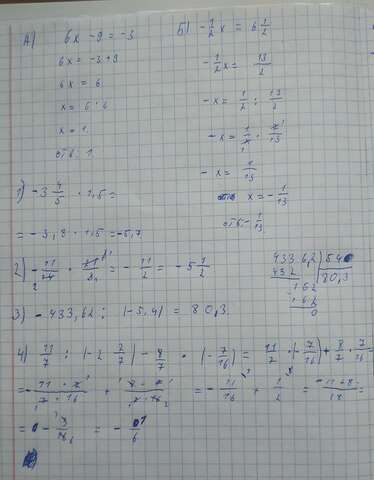 А) 6x - 9 = -3
6x = -3+9
6x = 6
x = 6 : 6
x = 1
отв: 1
Б) -1/2 x = 6 1/2
-1/2 x = 13/2
-x = 1/2 : 13/2
-x = 1/2 · 2/13
-x = 1/13
x = -1/13
отв: -1/13
1) -3 4/5 · 1,5 =
= -3,8 · 1,5 = -5,7
= -11/2 = -5 1/2
433,6,2 | 5,40
432 | 80,3
162
162
0
3) -433,62 : (-5,4) = 80,3
4) 11/7 : (-2 2/7) - 8/7 · (-7/16) = 11/7 · (-7/16) + 8/7 · 7/16
= -11 · 7 / 7 · 16 + 8 · 7 / 7 · 16 = -11/16 + 1/2 = -11+8 / 16 =